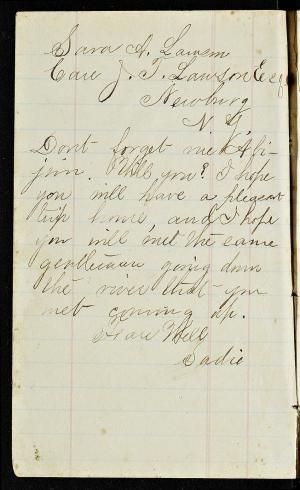 Sara A. Lawson
Care J. T. Lawson Esq
Newburg
N. Y
Dont forget me
jim. Will you? I hope
you will have a plesent
trip home, and I hope
you will met the same
gentleman going down
the river that you
met coming up.
Fare Well
Sadie